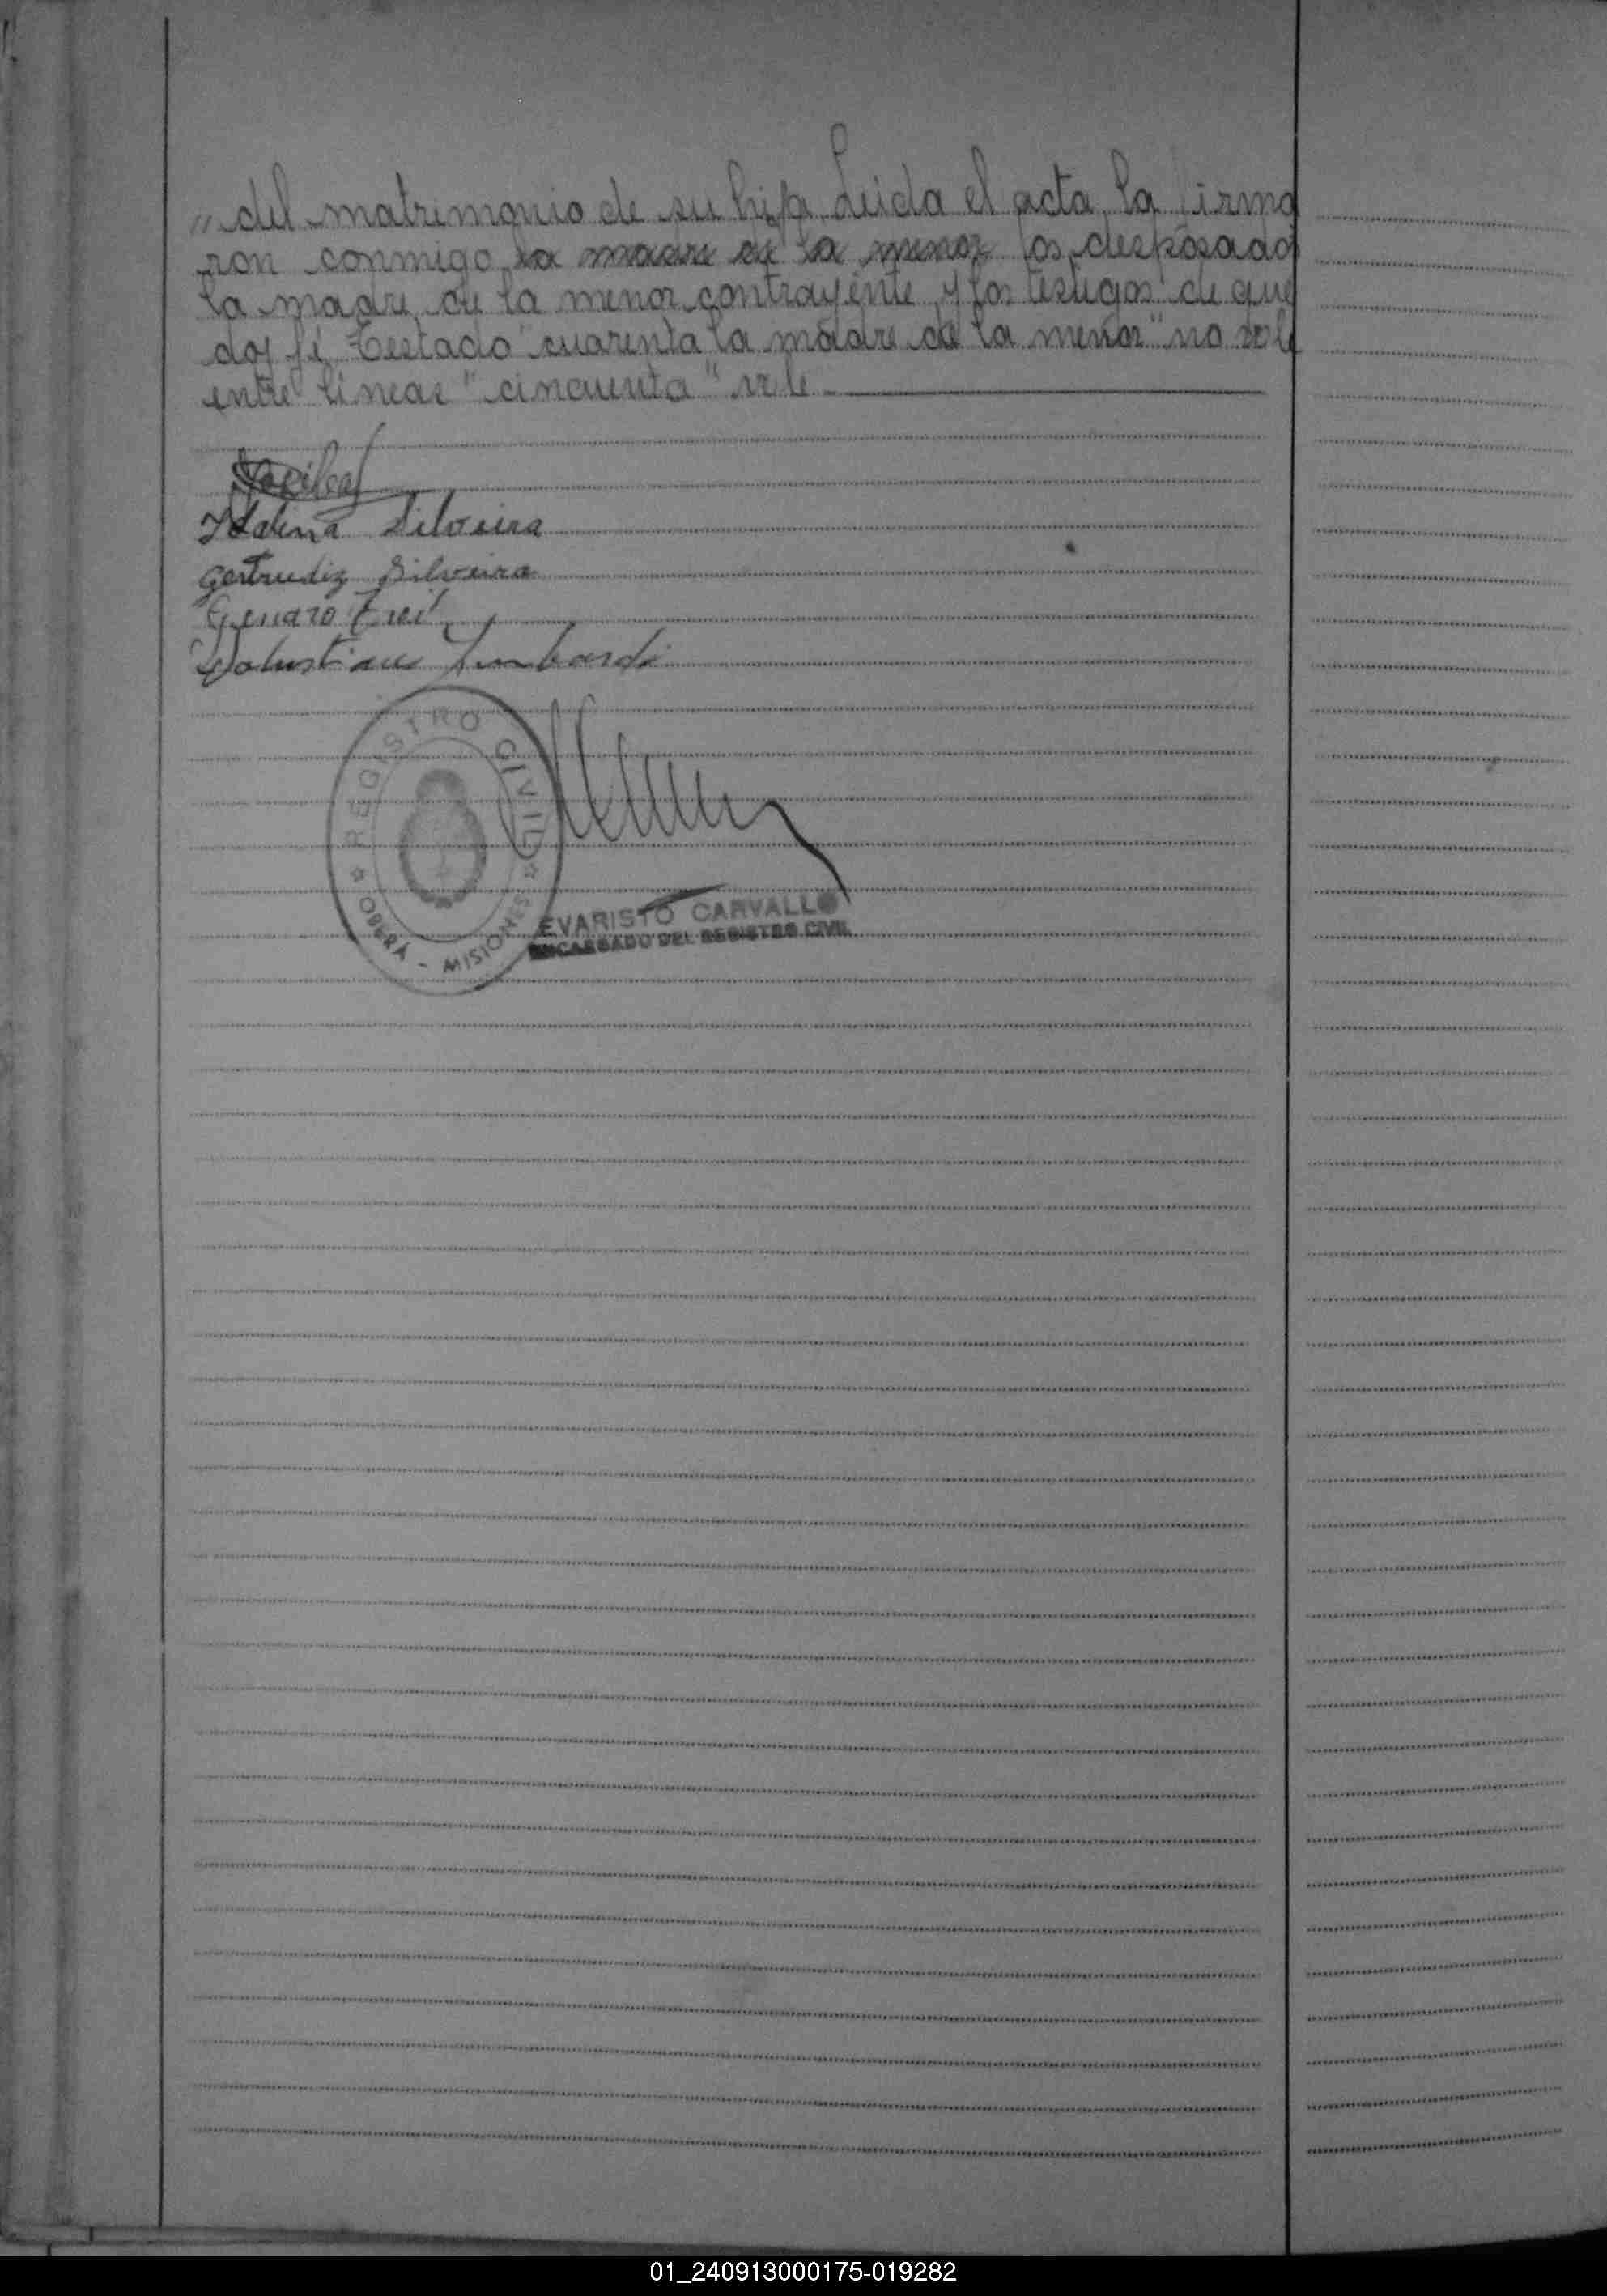 „ del matrimonio de su hija. Leida el acta, la firma
ron conmigo la madre de la menor los desposados
la madre de la menor contrayente y los testigos de que
doy fé. Testado "cuarenta la madre de la menor" no vale
entre lineas "cincuenta" vale
Silveira
Gertrudiz Silveira
Genaro
REGISTRO CIVIL
OBERÁ - MISIONES
EVARISTO CARVALLO
ENCARGADO DEL REGISTRO CIVIL
01_240913000175-019282